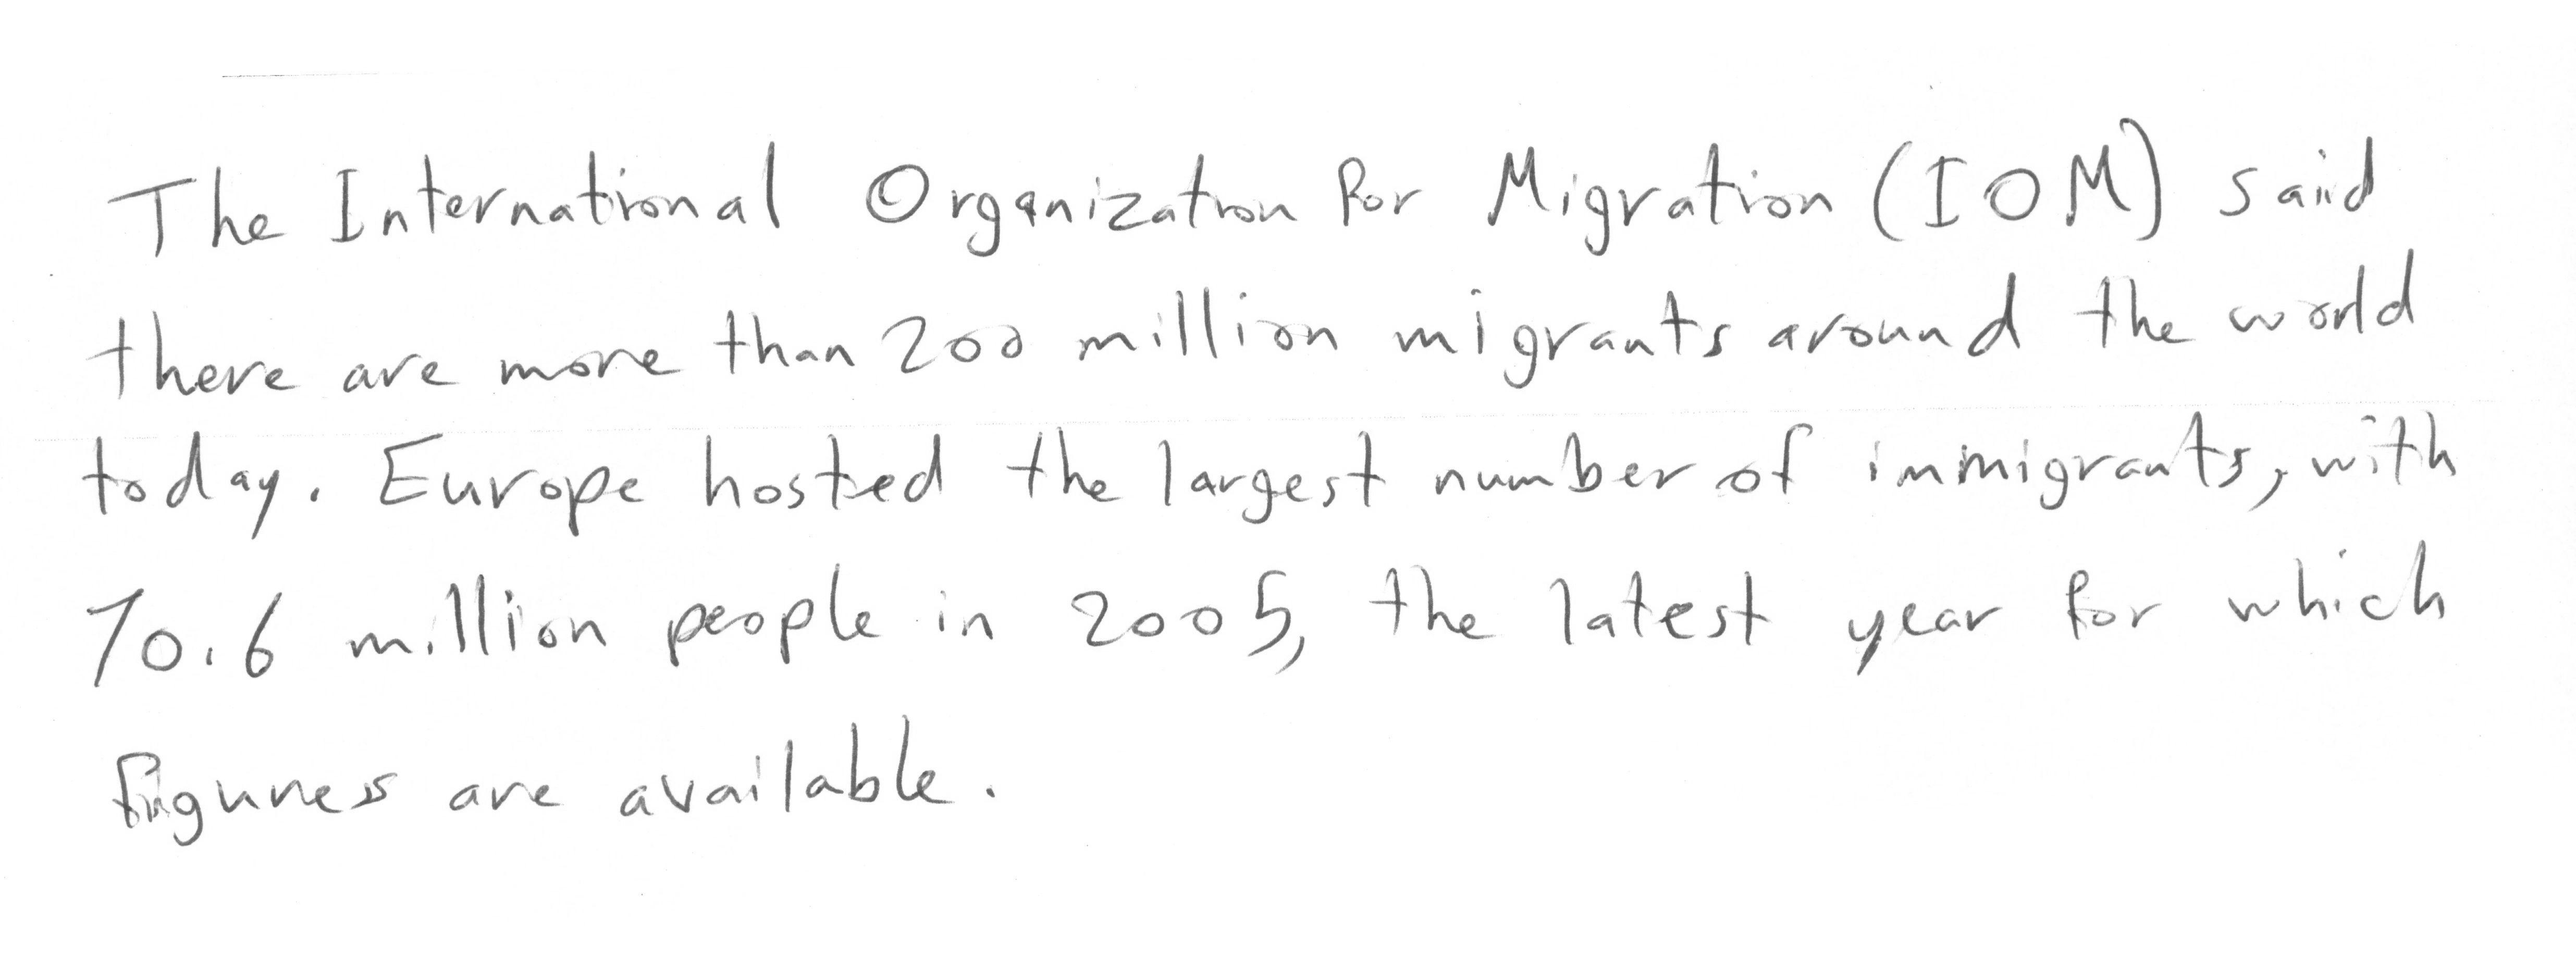 The International Organization for Migration (IOM) said
there are more than 200 million migrants around the world
today. Europe hosted the largest number of immigrants, with
70.6 million people in 2005, the latest year for which
figures are available.